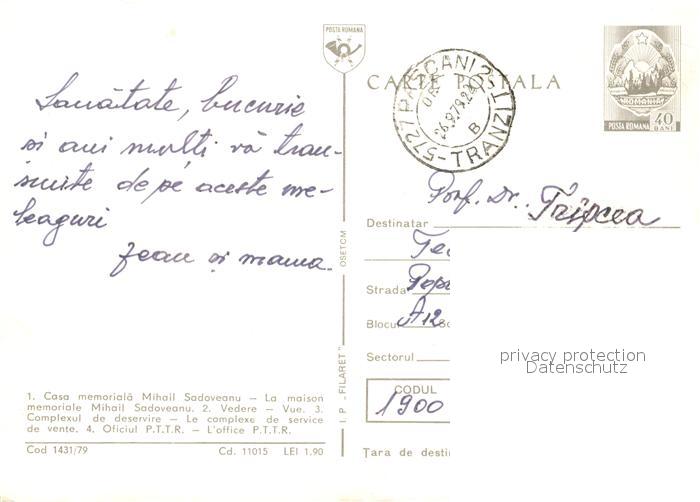 POSTA ROMANA
CARTE POSTALA
5727 PASCANI 2
26.9.79.22
B
TRANZIT
POSTA ROMANA 40 BANI
Sanătate, bucurie
și ani mulți vă tran-
smite de pe aceste me-
leaguri
Jean și mama.
Prof. Dr. Țrîpcea
Destinatar
Teo
Strada Popa
Blocul A12 Sc
Sectorul
CODUL
1900
Țara de desti
I. P. „FILARET" OSETCM
privacy protection
Datenschutz
1. Casa memorială Mihail Sadoveanu – La maison
memoriale Mihail Sadoveanu. 2. Vedere – Vue. 3.
Complexul de deservire – Le complexe de service
de vente. 4. Oficiul P.T.T.R. – L'office P.T.T.R.
Cod 1431/79 Cd. 11015 LEI 1.90